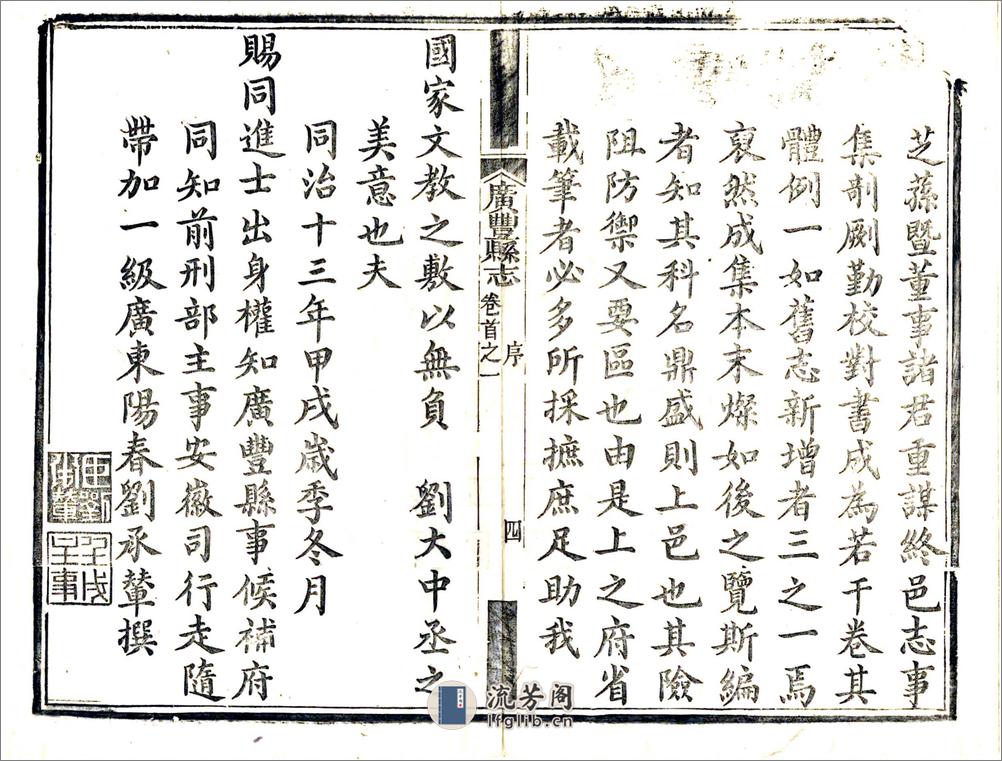 芝蓀暨董事諸君重謀終邑志事
集剞劂勤校對書成為若干卷其
體例一如舊志新增者三之一焉
裒然成集本末燦如後之覽斯編
者知其科名鼎盛則上邑也其險
阻防禦又要區也由是上之府省
載筆者必多所採摭庶足助我
廣豐縣志 卷首之一 序 四
國家文教之敷以無負 劉大中丞之
美意也夫
同治十三年甲戌歲季冬月
賜同進士出身權知廣豐縣事候補府
同知前刑部主事安徽司行走隨
帶加一級廣東陽春劉承輦撰
流芳阁
lfglib.cn